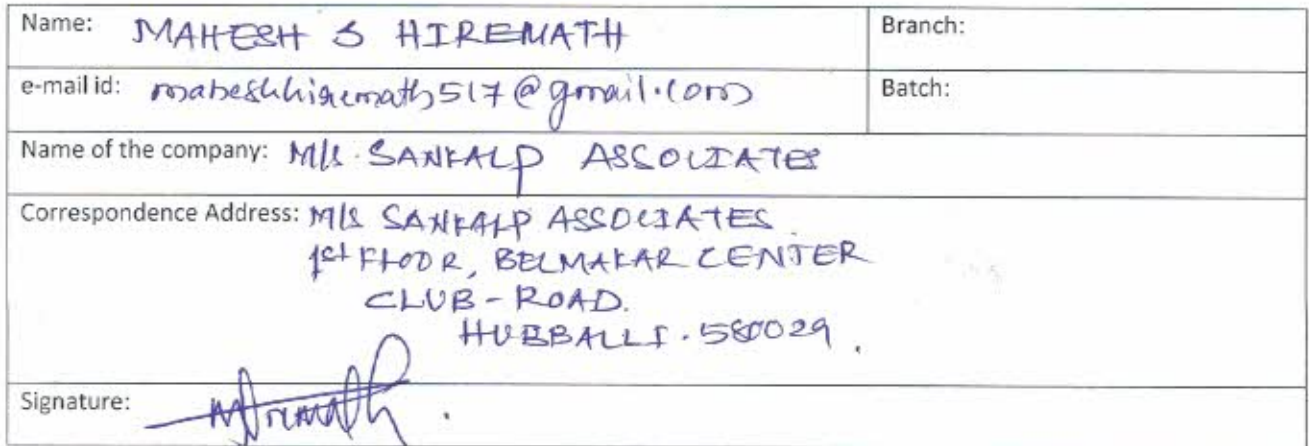 Name: MAHESH S HIREMATH Branch:
e-mail id: maheshhiremath517@gmail.com Batch:
Name of the company: M/s. SANKALP ASSOCIATES
Correspondence Address: M/s SANKALP ASSOCIATES.
1st FLOOR, BELMAKAR CENTER
CLUB-ROAD.
HUBBALLI.580029.
Signature: